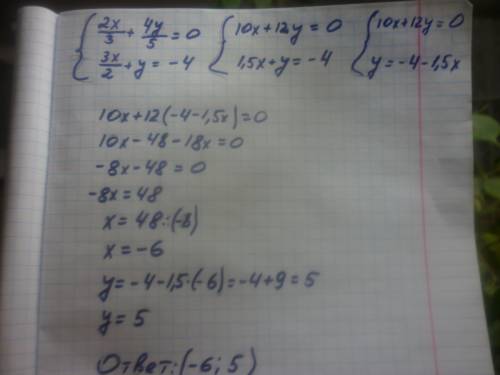 { 2x/3 + 4y/5 = 0 { 10x+12y=0 { 10x+12y=0
{ 3x/2 + y = -4 { 1,5x+y=-4 { y=-4-1,5x
10x+12(-4-1,5x)=0
10x-48-18x=0
-8x-48=0
-8x=48
x=48:(-8)
x=-6
y=-4-1,5·(-6)=-4+9=5
y=5
Ответ:(-6;5)